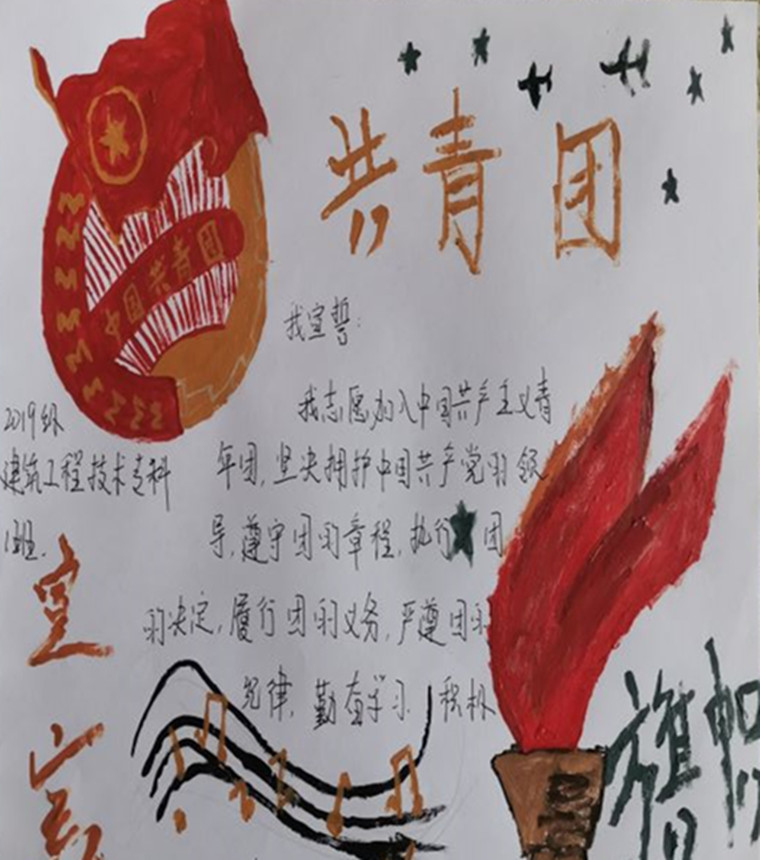 共青团
中国共青团
我宣誓:
我志愿加入中国共产主义青
年团,坚决拥护中国共产党的领
导,遵守团的章程,执行团
的决定,履行团的义务,严遵团的
纪律,勤奋学习 积极
2019级
建筑工程技术专科
1班.
宣
言
旗帜